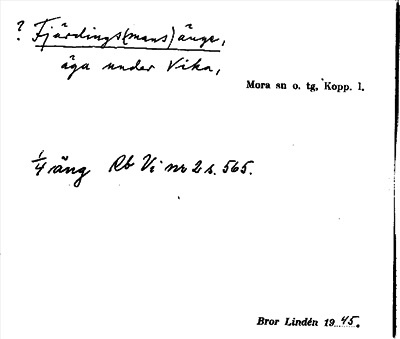 ? Fjärdings(mans)änge,
äga under Vika,
Mora sn o. tg, Kopp. l.
1/4 äng Rb Vi nr 2 s. 565.
Bror Lindén 1945.